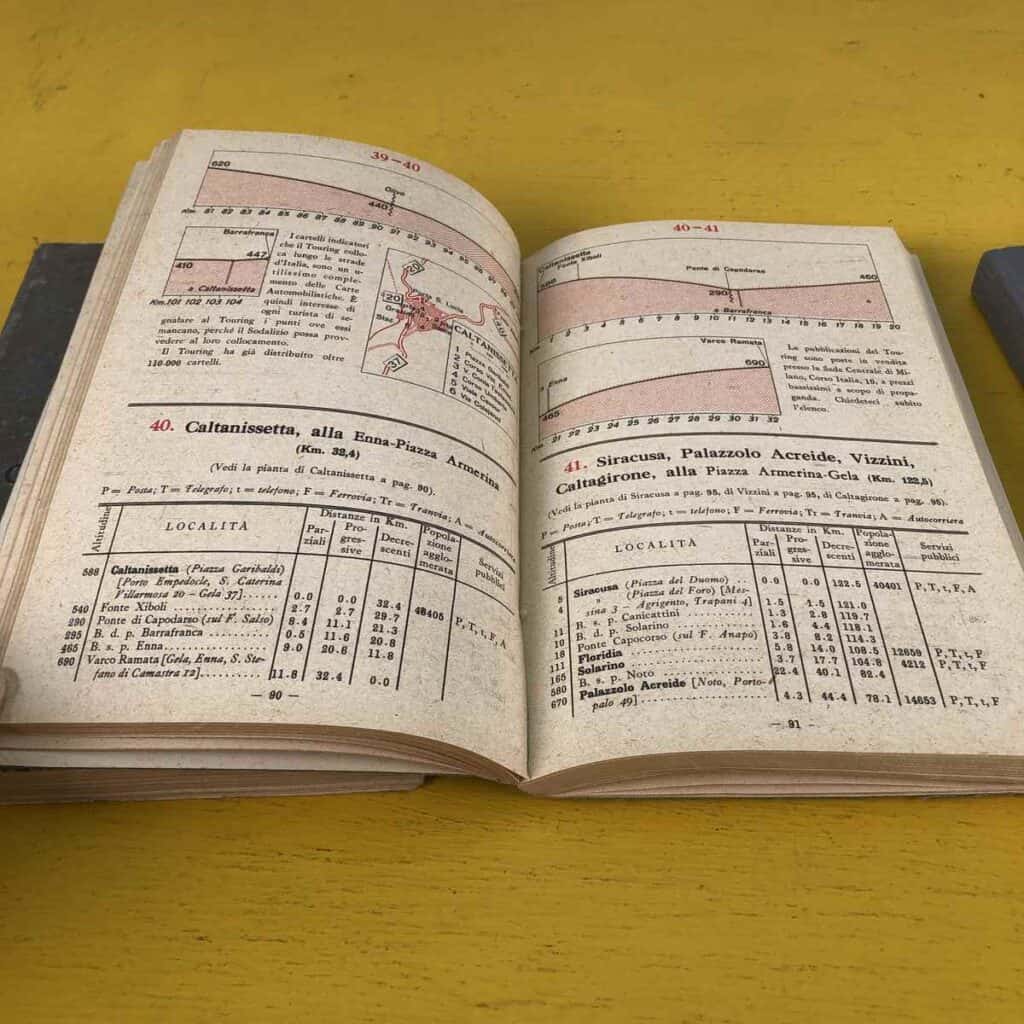 39-40
620
Olivo
440
Km. 81 82 83 84 85 86 87 88 89 90 91 92 93 94 95
Barrafranca
447
410
a Caltanissetta
Km. 101 102 103 104
I cartelli indicatori
che il Touring collo-
ca lungo le strade
d'Italia, sono un u-
tilissimo comple-
mento delle Carte
Automobilistiche. È
quindi interesse di
ogni turista di se-
gnalare al Touring i punti ove essi
mancano, perché il Sodalizio possa prov-
vedere al loro collocamento.
Il Touring ha già distribuito oltre
110.000 cartelli.
21
20
37
CALTANISSETTA
1
2
3
4
5
6
40. Caltanissetta, alla Enna-Piazza Armerina
(Km. 32,4)
(Vedi la pianta di Caltanissetta a pag. 90).
P = Posta; T = Telegrafo; t = telefono; F = Ferrovia; Tr = Tranvia; A = Autocorriera
Altitudine
LOCALITÀ
Distanze in Km.
Par-
ziali
Pro-
gres-
sive
Decre-
scenti
Popola-
zione
agglo-
merata
Servizi
pubblici
588 Caltanissetta (Piazza Garibaldi)
[Porto Empedocle, S. Caterina
Villarmosa 20 - Gela 37]...... 0.0 0.0 32.4 48405 P, T, t, F, A
540 Fonte Xiboli ............ 2.7 2.7 29.7
290 Ponte di Capodarso (sul F. Salso) 8.4 11.1 21.3
295 B. d. p. Barrafranca ........ 0.5 11.6 20.8
465 B. s. p. Enna............ 9.0 20.6 11.8
690 Varco Ramata [Gela, Enna, S. Ste-
fano di Camastra 12].......... 11.8 32.4 0.0
— 90 —
40-41
Caltanissetta
Fonte Xiboli
Ponte di Capodarso
588
290
460
a Barrafranca
1 2 3 4 5 6 7 8 9 10 11 12 13 14 15 16 17 18 19 20
Varco Ramata
690
a Enna
465
Km. 21 22 23 24 25 26 27 28 29 30 31 32
Le pubblicazioni del Tou-
ring sono poste in vendita
presso la Sede Centrale di Mi-
lano, Corso Italia, 10, a prezzi
bassissimi a scopo di propa-
ganda. Chiedeteci subito
l'elenco.
41. Siracusa, Palazzolo Acreide, Vizzini,
Caltagirone, alla Piazza Armerina-Gela (Km. 122,5)
(Vedi la pianta di Siracusa a pag. 95, di Vizzini a pag. 95, di Caltagirone a pag. 95).
P = Posta; T = Telegrafo; t = telefono; F = Ferrovia; Tr = Tranvia; A = Autocorriera
Altitudine
LOCALITÀ
Distanze in Km.
Par-
ziali
Pro-
gres-
sive
Decre-
scenti
Popola-
zione
agglo-
merata
Servizi
pubblici
5 Siracusa (Piazza del Duomo) .. 0.0 0.0 122.5 40401 P, T, t, F, A
4 » (Piazza del Foro) [Mes-
sina 3 - Agrigento, Trapani 4] 1.5 1.5 121.0
11 B. s. p. Canicattini ........ 1.3 2.8 119.7
11 B. d. p. Solarino ........ 1.6 4.4 118.1
10 Ponte Capocorso (sul F. Anapo) 3.8 8.2 114.3
18 Floridia ............ 5.8 14.0 108.5 12659 P, T, t, F
111 Solarino ............ 3.7 17.7 104.8 4212 P, T, t, F
165 B. s. p. Noto ............ 22.4 40.1 82.4
580 Palazzolo Acreide [Noto, Porto-
670 palo 49] ............ 4.3 44.4 78.1 14653 P, T, t, F
— 91 —